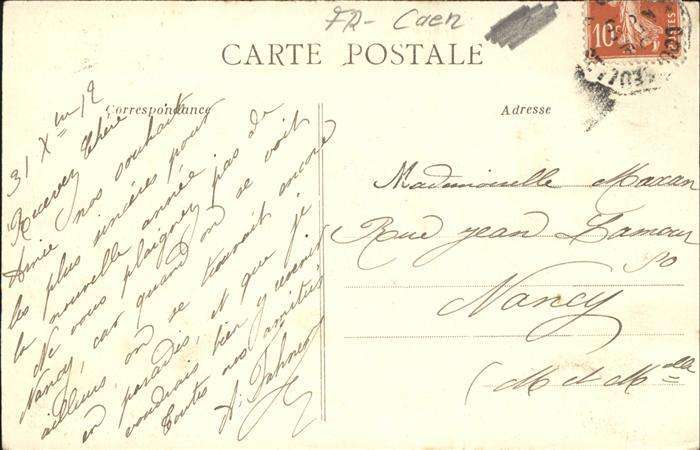 FR - Caen
CARTE POSTALE
10c
Correspondance
Adresse
31 Xre 12
Recevez Chère
Amie nos souhaits
les plus sincères pour
la nouvelle année
Ne vous plaignez pas de
Nancy, car quand on se voit
ailleurs, on se trouvait encore
en paradis, et que je
voudrais bien y revenir
Toutes nos amitiés
Mademoiselle
Rue Jean Lamour
Nancy
(M et Mlle